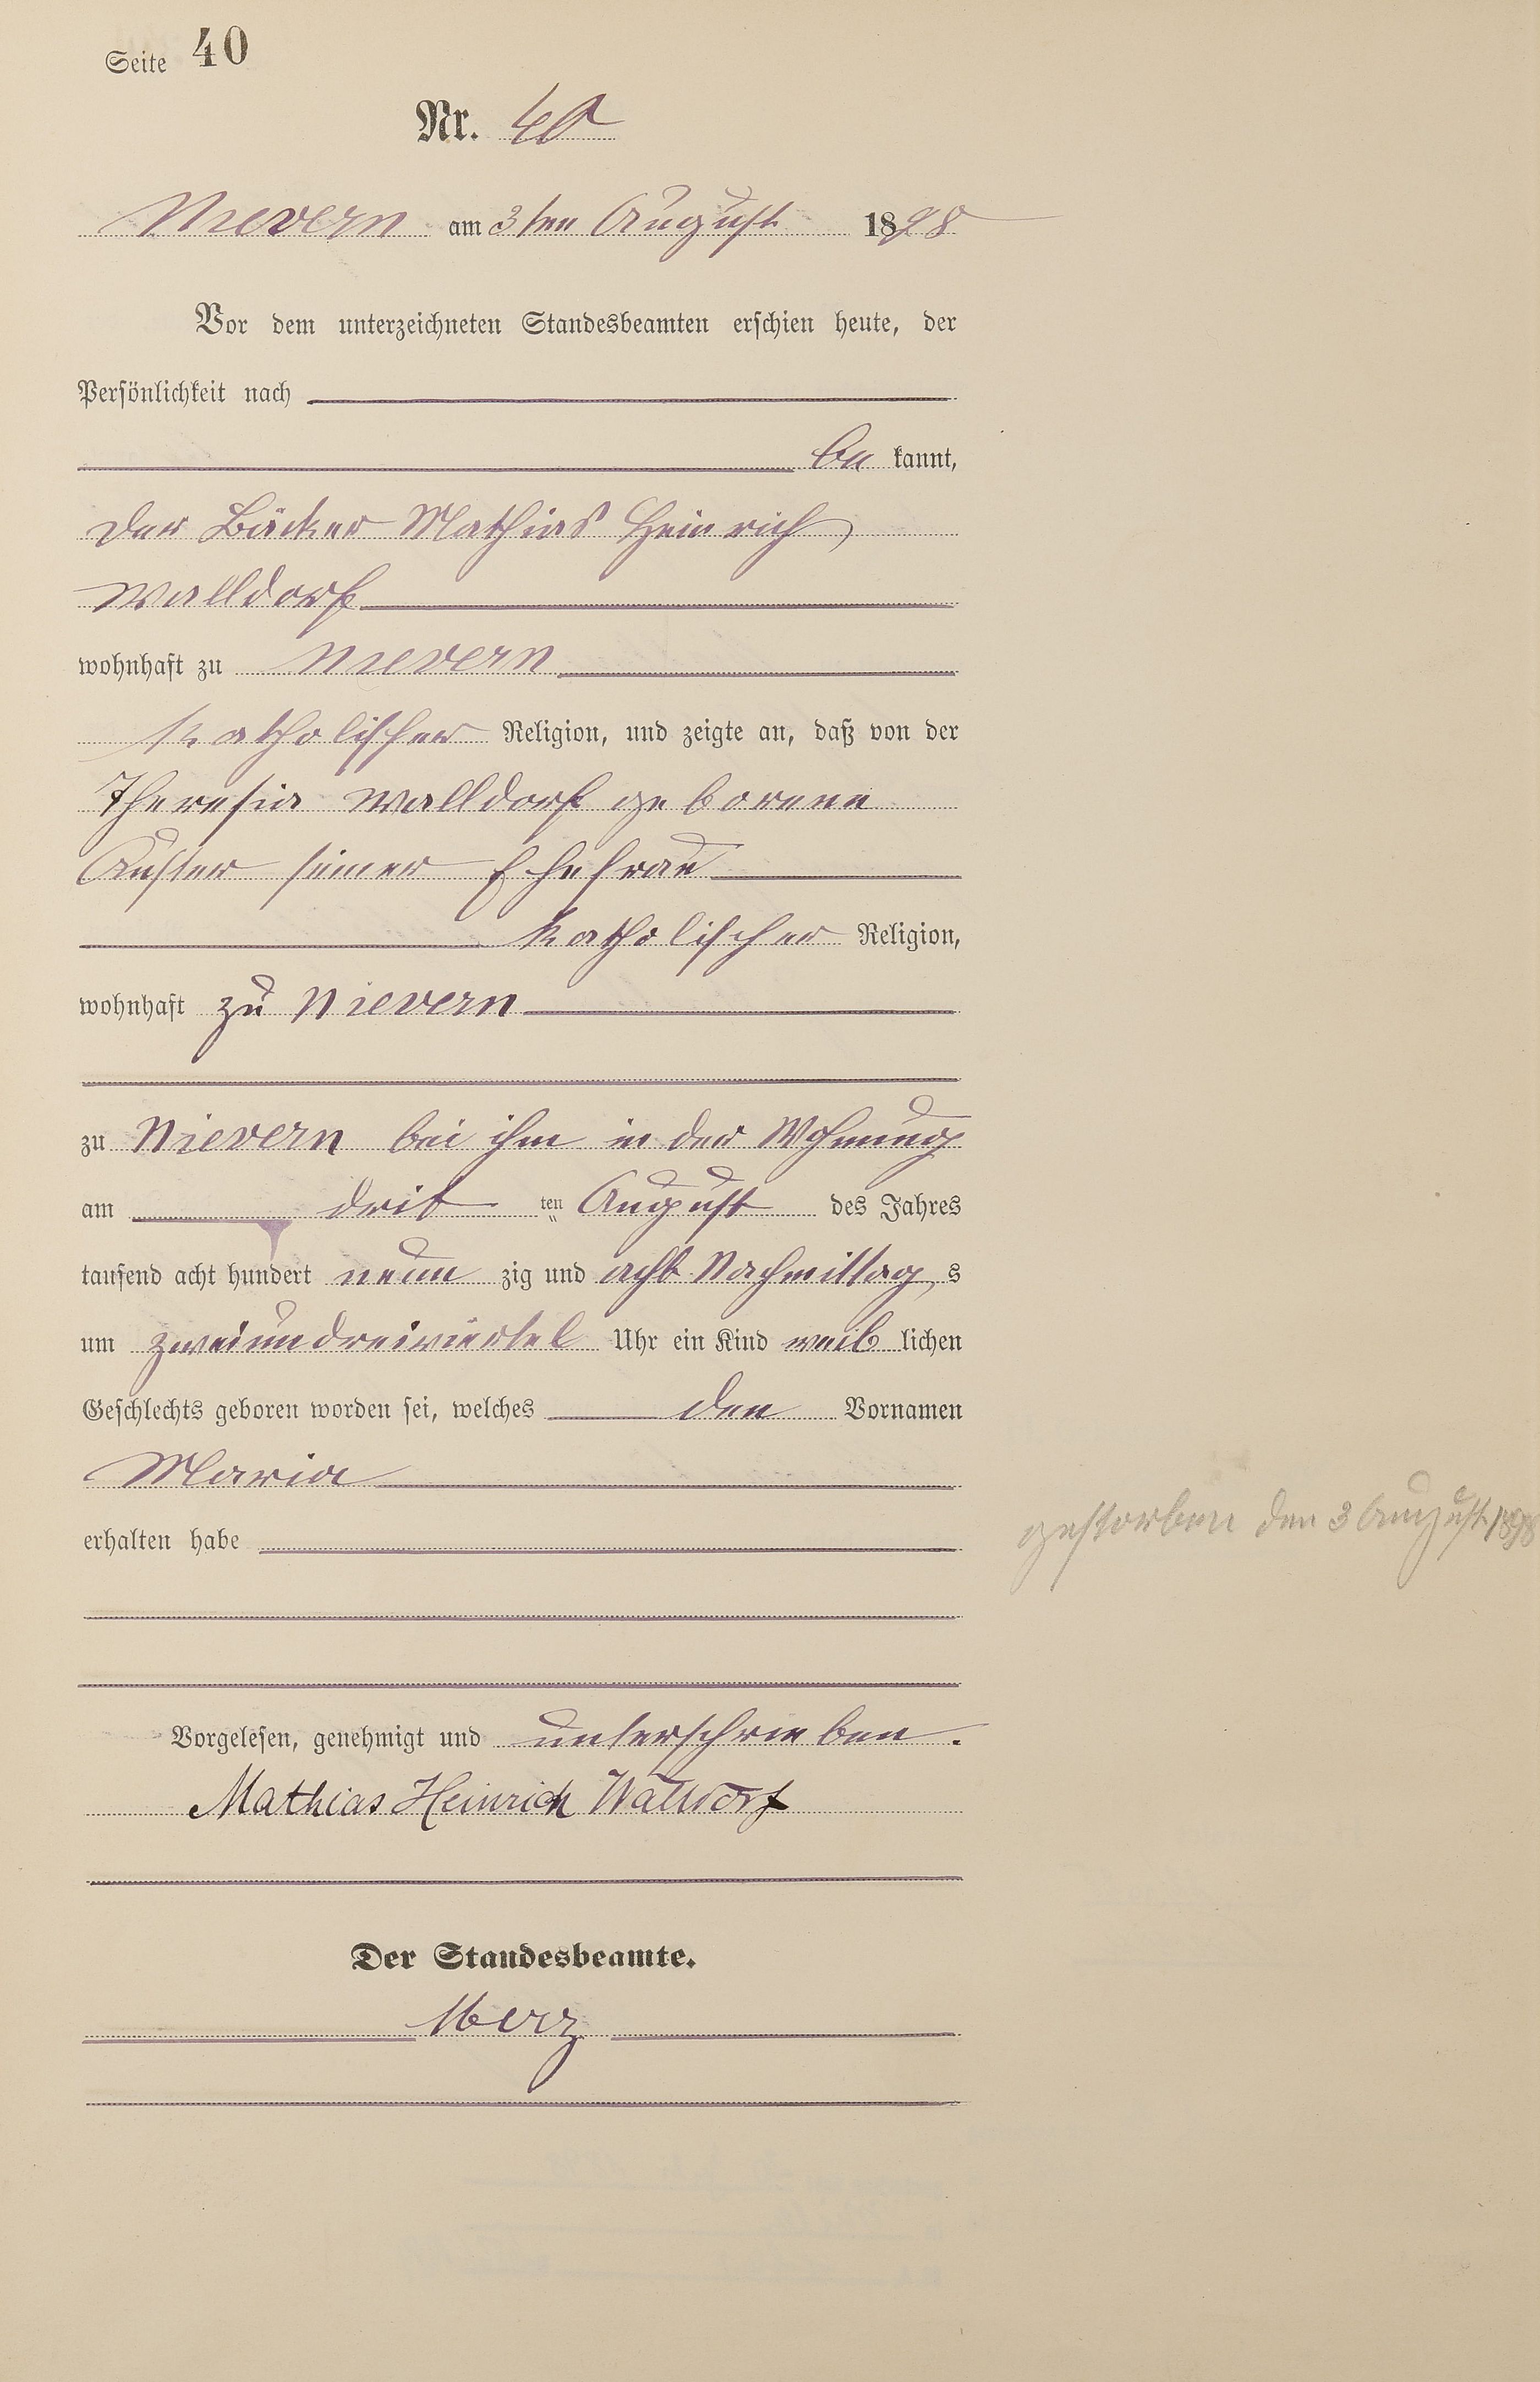 Seite 40
Nr. 40
Nievern am 3ten August 1898
Vor dem unterzeichneten Standesbeamten erschien heute, der
Persönlichkeit nach
be kannt,
der Bäcker Mathias Heinrich
Walldorf
wohnhaft zu Nievern
katholischer Religion, und zeigte an, daß von der
Theresia Walldorf geborene
Auster seiner Ehefrau
katholischer Religion,
wohnhaft zu Nievern
zu Nievern bei ihm in der Wohnung
am dritten August des Jahres
tausend acht hundert neun zig und acht Nachmittag s
um zweiundreiviertel Uhr ein Kind weib lichen
Geschlechts geboren worden sei, welches den Vornamen
Maria
erhalten habe
gestorben den 3 August 1898
Vorgelesen, genehmigt und unterschrieben.
Mathias Heinrich Walldorf
Der Standesbeamte.
Merz